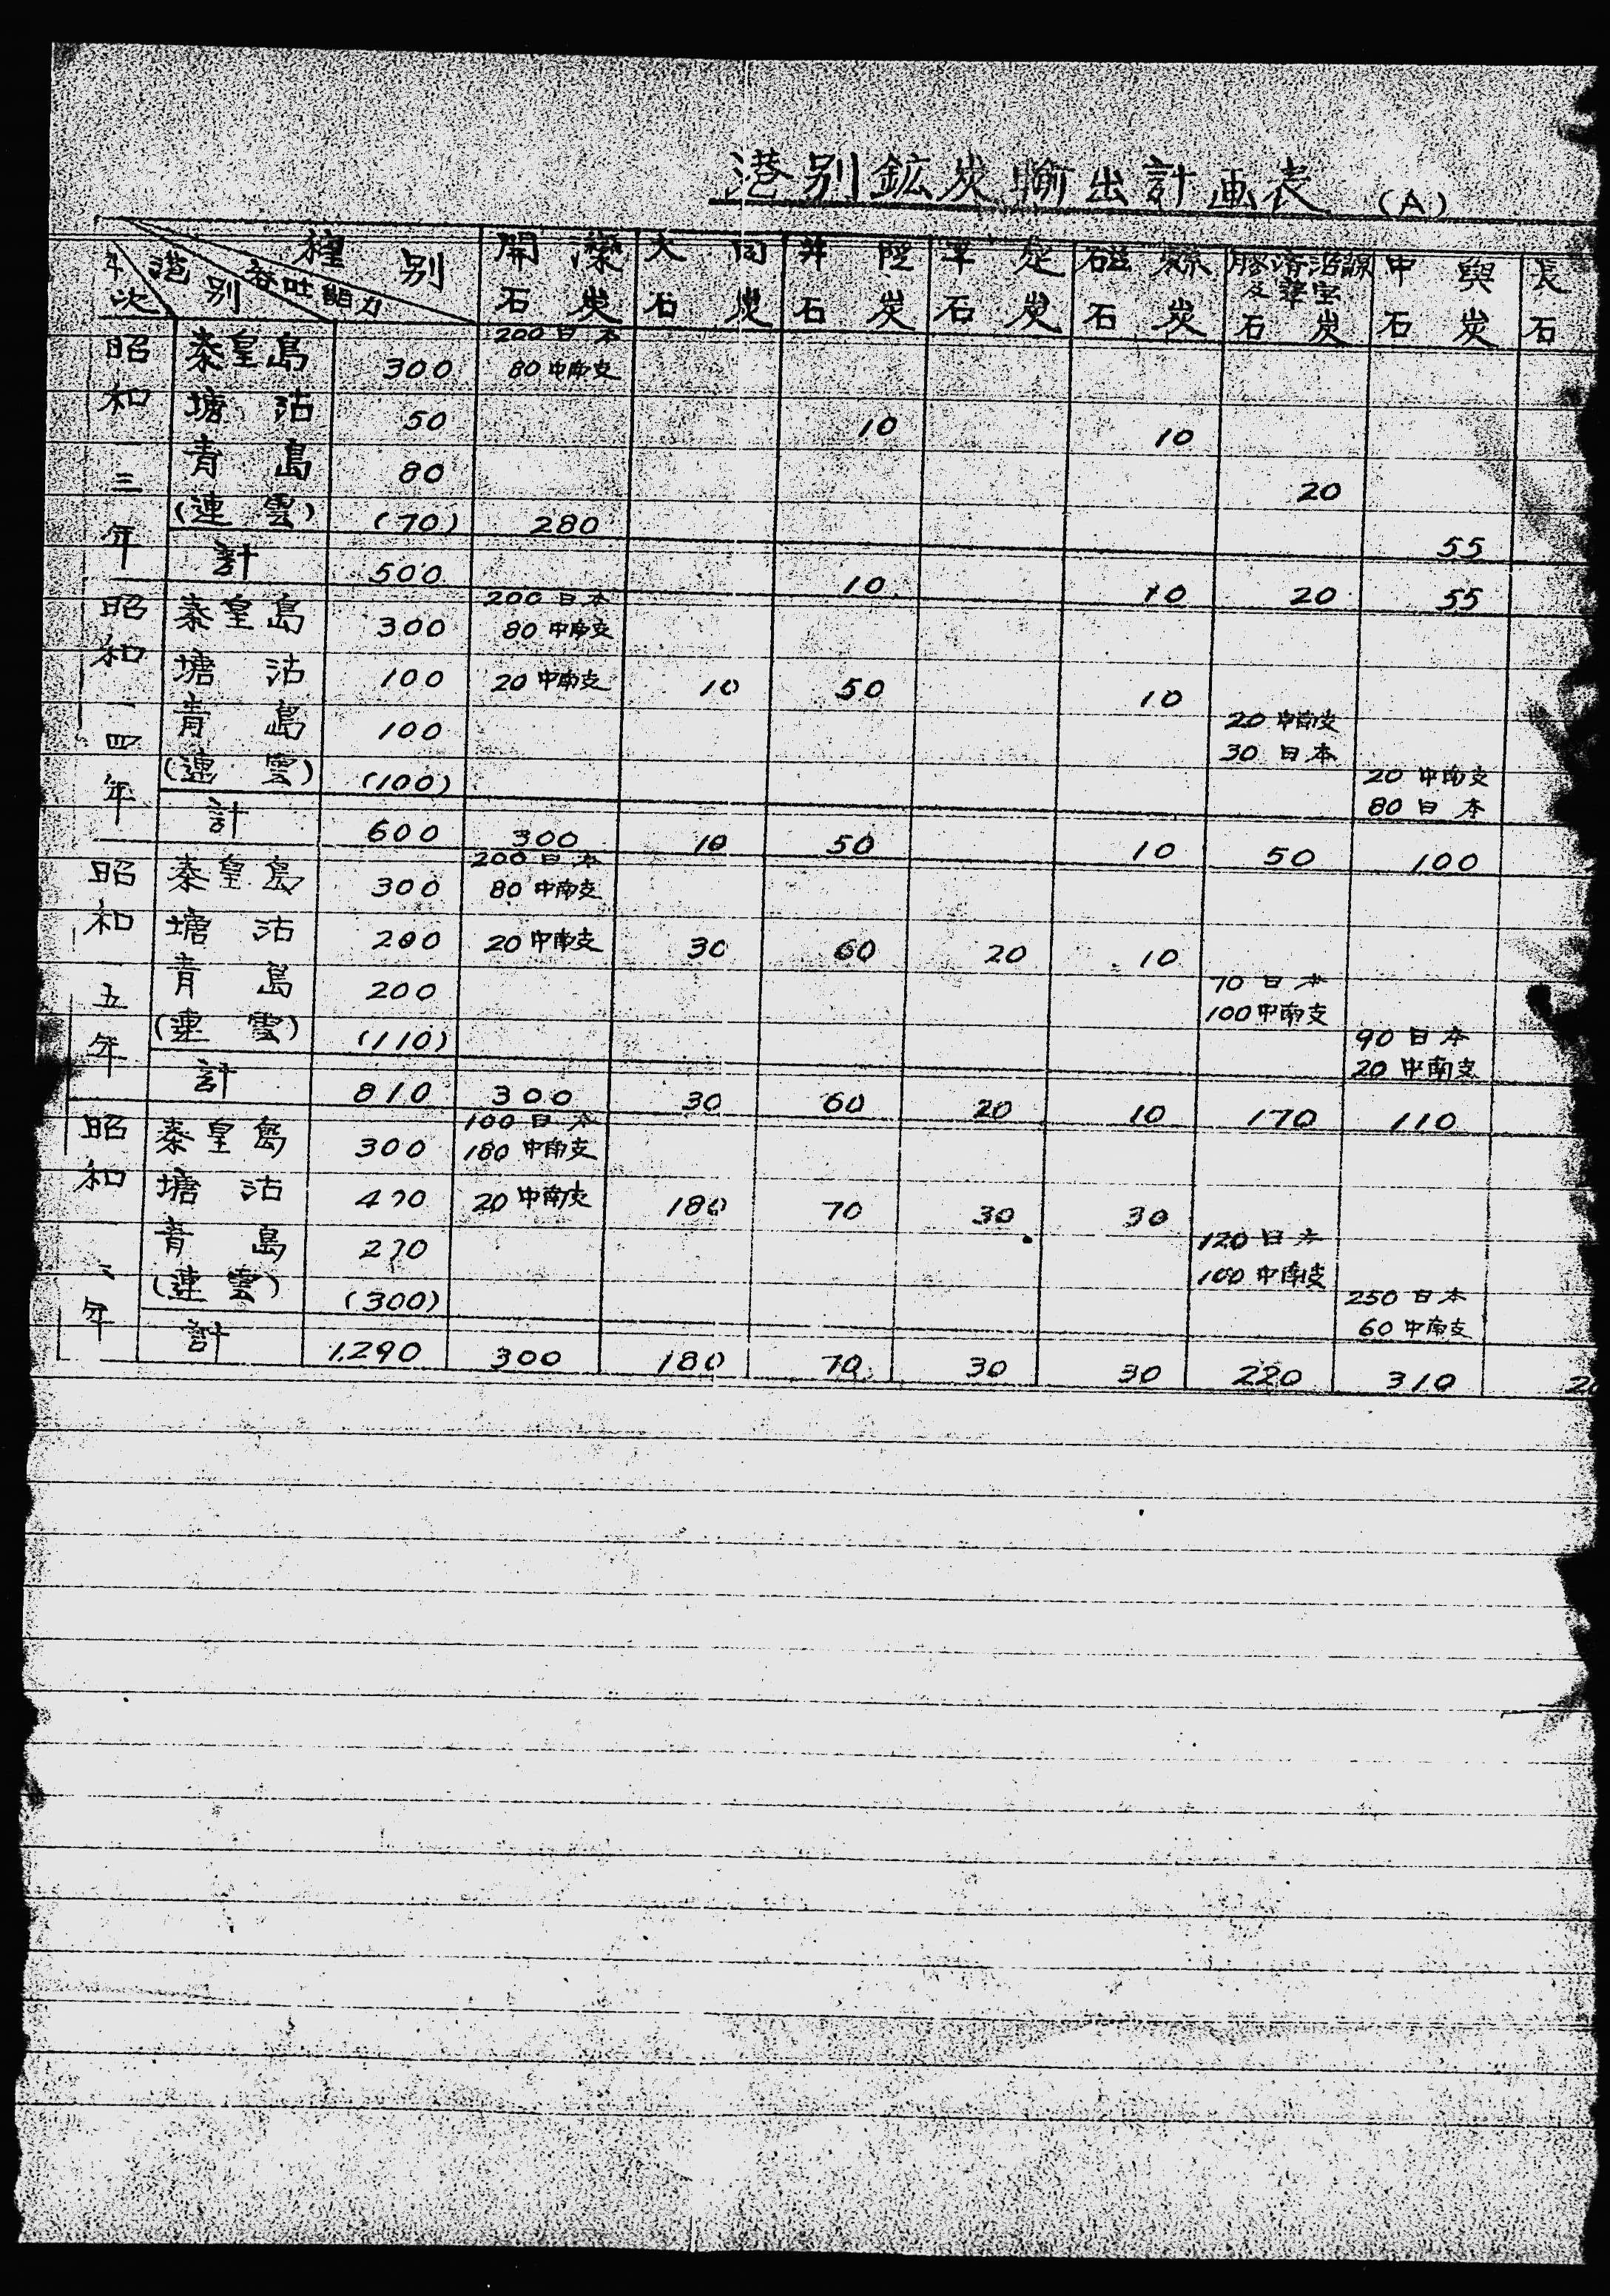 港別鉱炭輸出計画表 (A)
年次 港別 呑吐能力 種別 開灤石炭 大同石炭 井陘石炭 石炭 磁縣石炭 膠濟沿線及 石炭 中興石炭 長 石
昭和 三年
秦皇島 300 200日本 80中南支
塘沽 50 10 10
青島 80 20
(連雲) (70) 280 55
計 500 10 10 20 55
昭和一四年
秦皇島 300 200日本 80中南支
塘沽 100 20中南支 10 50 10
青島 100 20中南支 30日本
(連雲) (100) 20中南支 80日本
計 600 300 10 50 10 50 100
昭和 五年
秦皇島 300 200日本 80中南支
塘沽 200 20中南支 30 60 20 10
青島 200 70日本 100中南支
(連雲) (110) 90日本 20中南支
計 810 300 30 60 20 10 170 110
昭和 年
秦皇島 300 100日本 180中南支
塘沽 20中南支 180 70 30 30
青島 120日本 100中南支
(連雲) (300) 250日本 60中南支
計 1,290 300 180 70 30 30 220 310